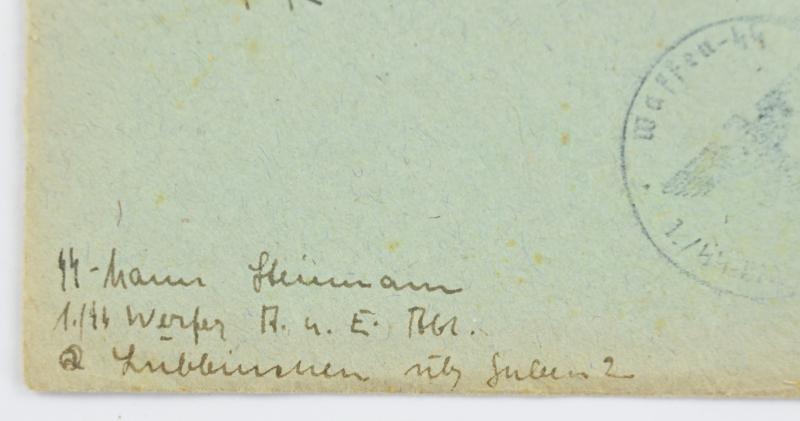 Waffen-SS
SS-Mann Steinmann
1./SS Werfer A. u. E. Abt.
Lübbinchen üb. Guben 2